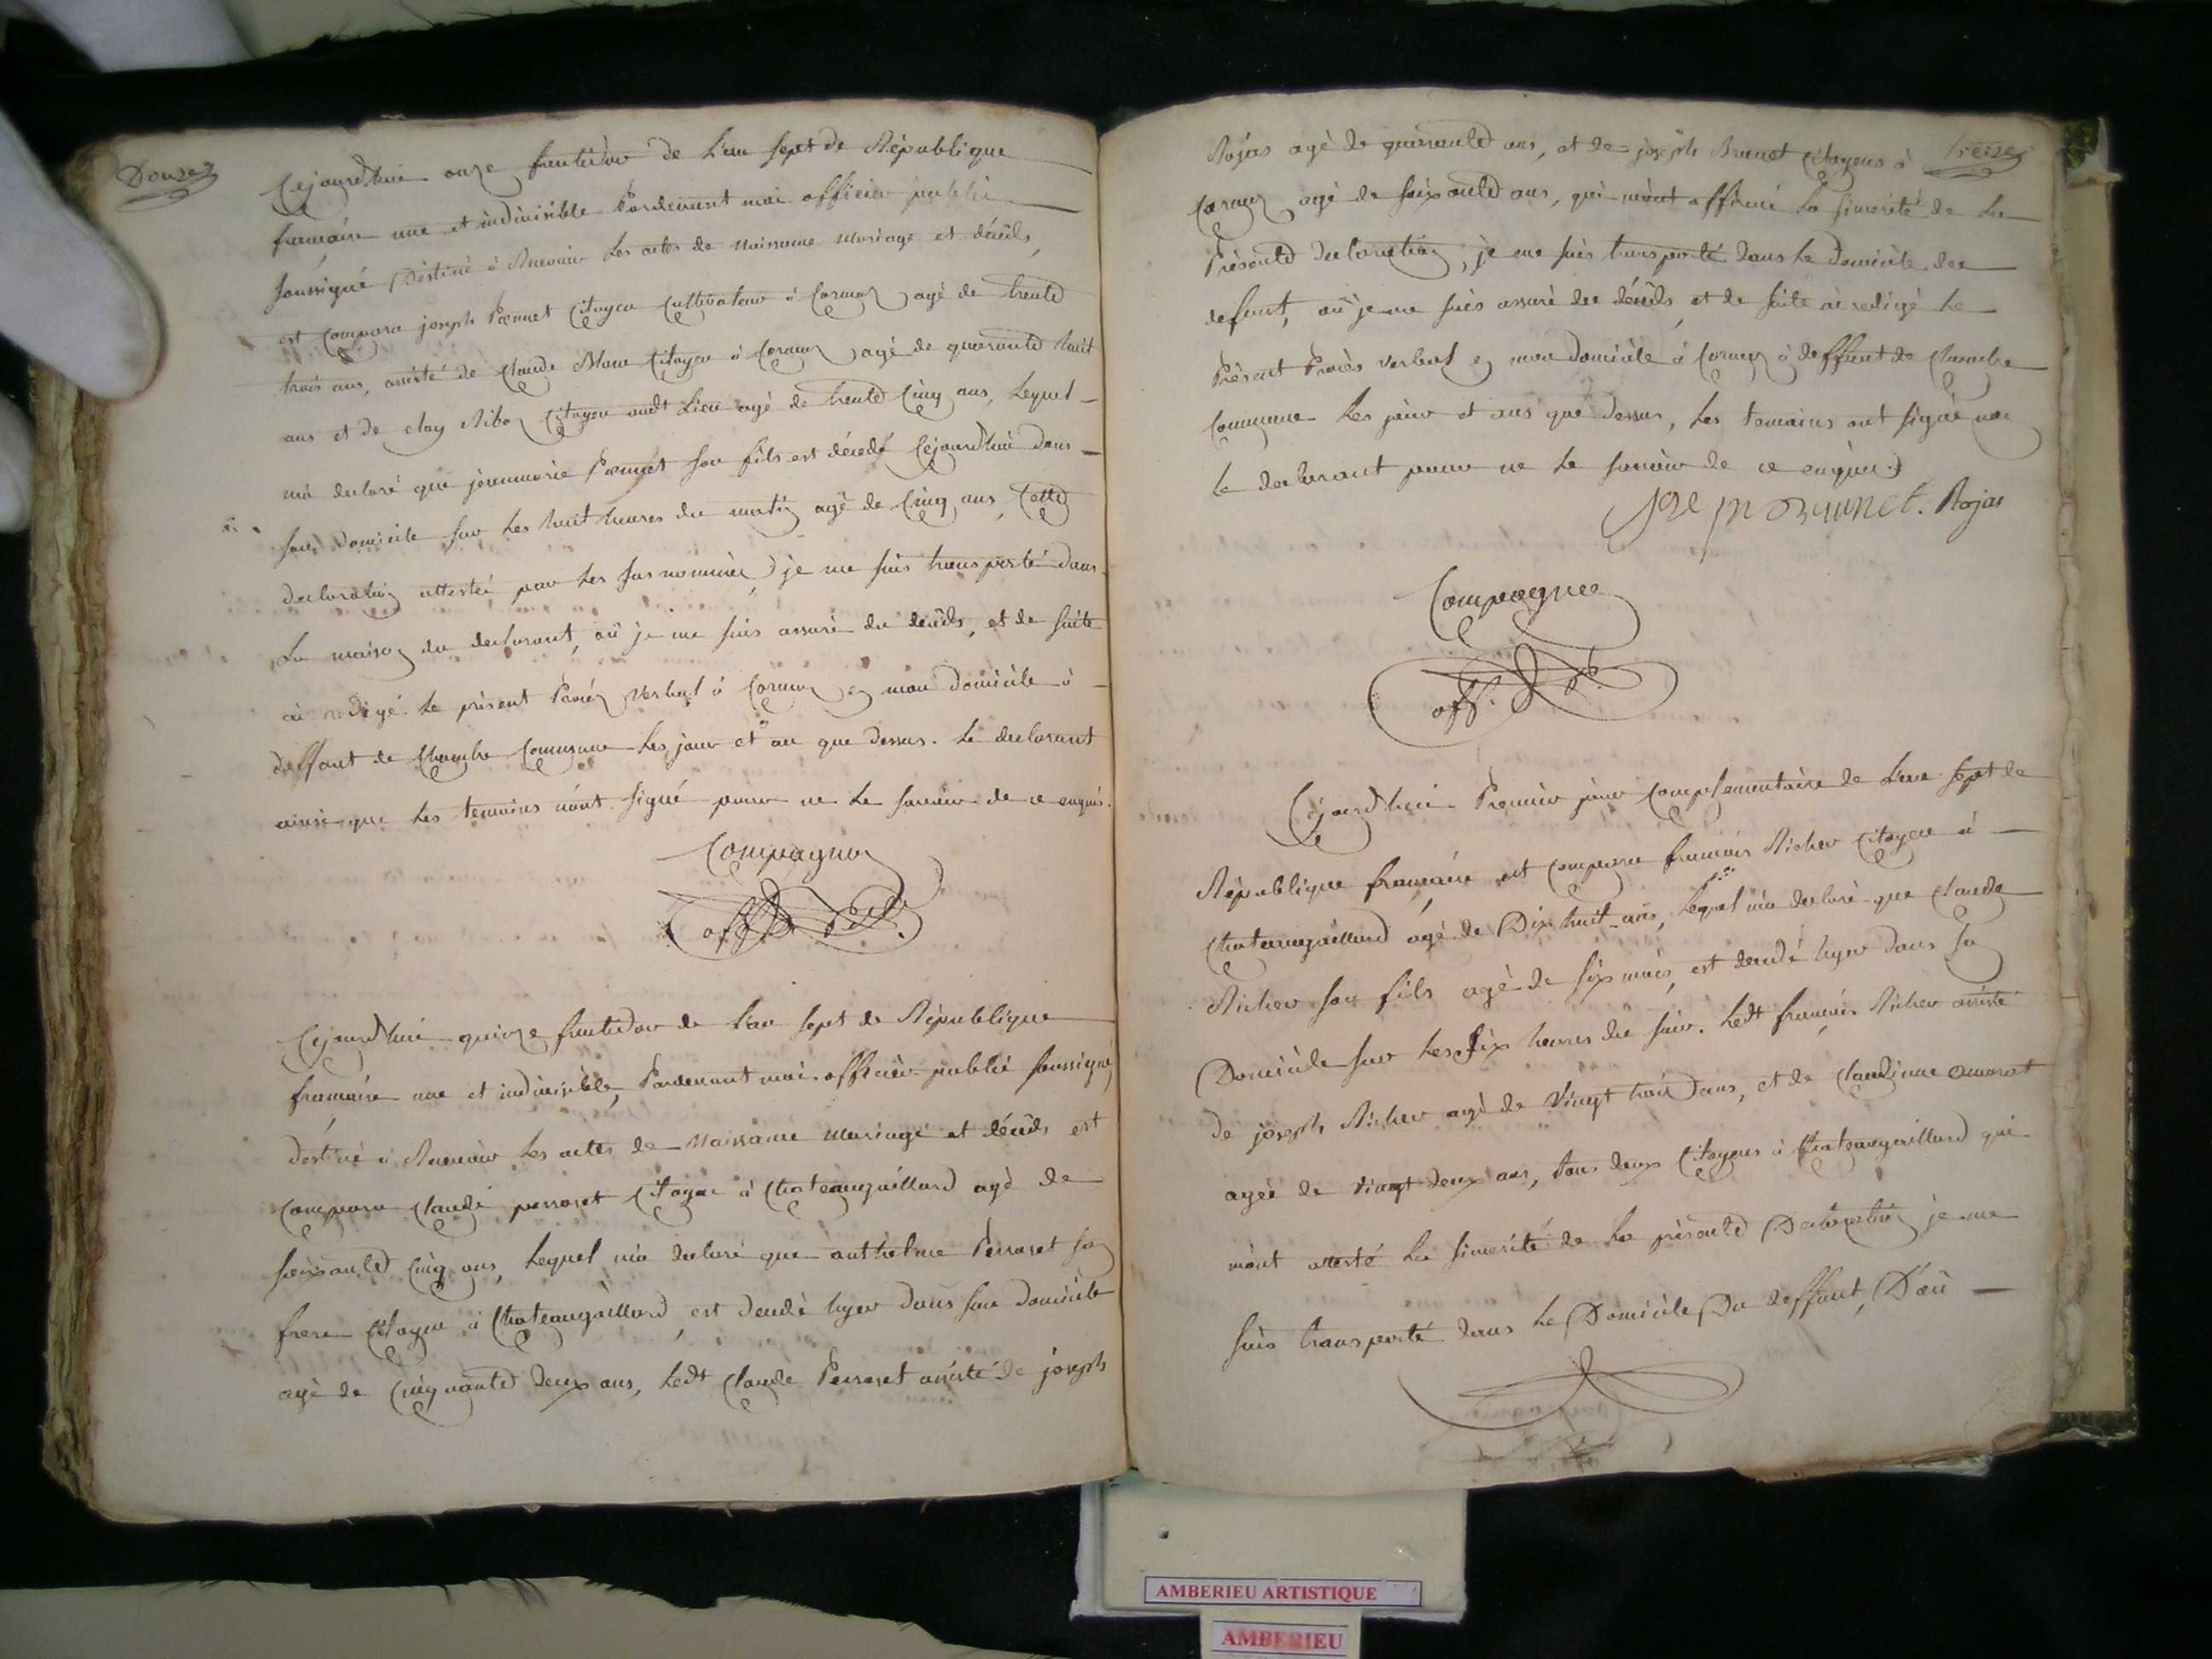 Douze
Cejourdhui onze fructidor de L'an sept de République
francaise une et indivisible Pardevant moi officier public
soussigné Déstiné à Recevoir Les actes de Naissance Mariage et décéds,
est comparu joseph Citoyen Cultivateur à Cormoz agé de trente
trois ans, assisté de Claude Blanc Citoyen à Cormoz agé de quarante huit
ans et de Citoyen audt Lieu agé de trente Cinq ans, Lequel
m'à declaré que jeanmarie son fils est décédé Cejourdhui dans
son domicile sur Les huit heures du matin agé de Cinq ans, Cette
declaration attestée par Les sus nommées je me suis transporté dans
La maison du declarant, où je me suis assuré du décéds, et de suite
ai redigé Le présent Procéz verbal à Cormoz en mon domicile à
deffaut de Chambre Commune Les jour et an que dessus. Le declarant
ainsi que Les temoins n'ont signé pour ne Le savoir de ce enquis.
Compagnon
off. pub.
Cejourdhui quinze fructidor de L'an sept de République
francaise une et indivisible, Pardevant moi officier public soussigné
destiné à Recevoir Les actes de Naissance Mariage et décéds est
comparu Claude perraset Citoyen à Chateaugaillard agé de
soixante Cinq ans, Lequel m'à declaré que anthelme Perraset son
frere Citoyen à Chateaugaillard, est decedé hyer dans son domicile
agé de Cinquante deux ans, Ledt Claude Perraset assisté de joseph
treize
Rojas agé de quarante ans, et de joseph Brunet Citoyens à
Cormoz agé de soixante ans, qui m'ont affirmé La sincerité de La
Présente declaration, je me suis transporté dans Le domicile du
defunt, où je me suis assuré du décéds, et de suite ai redigé Le
Présent Procès verbal en mon domicile à Cormoz à deffaut de Chambre
Commune Les jour et ans que dessus, Les temoins ont signé non
Le declarant pour ne Le savoir de ce enquis.
Joseph Brunet. Rojas
Compagnon
off. pb.
Cejourdhui Premier jour Complementaire de L'an sept de
République francaise est comparu francois Richer Citoyen à
Chateaugaillard agé de Dix huit ans, Lequel m'à declaré que Claude
Richer son fils agé de six mois, est decedé hyer dans son
Domicile sur Les six heures du soir. Ledt francois Richer assisté
de joseph Richer agé de Vingt trois ans, et de Claudine
agée de Vingt deux ans, tous deux Citoyens à Chateaugaillard qui
m'ont attesté La sincerité de La présente Declaration je me
suis transporté dans Le Domicile Du deffunt, D'où
AMBERIEU ARTISTIQUE
AMBERIEU